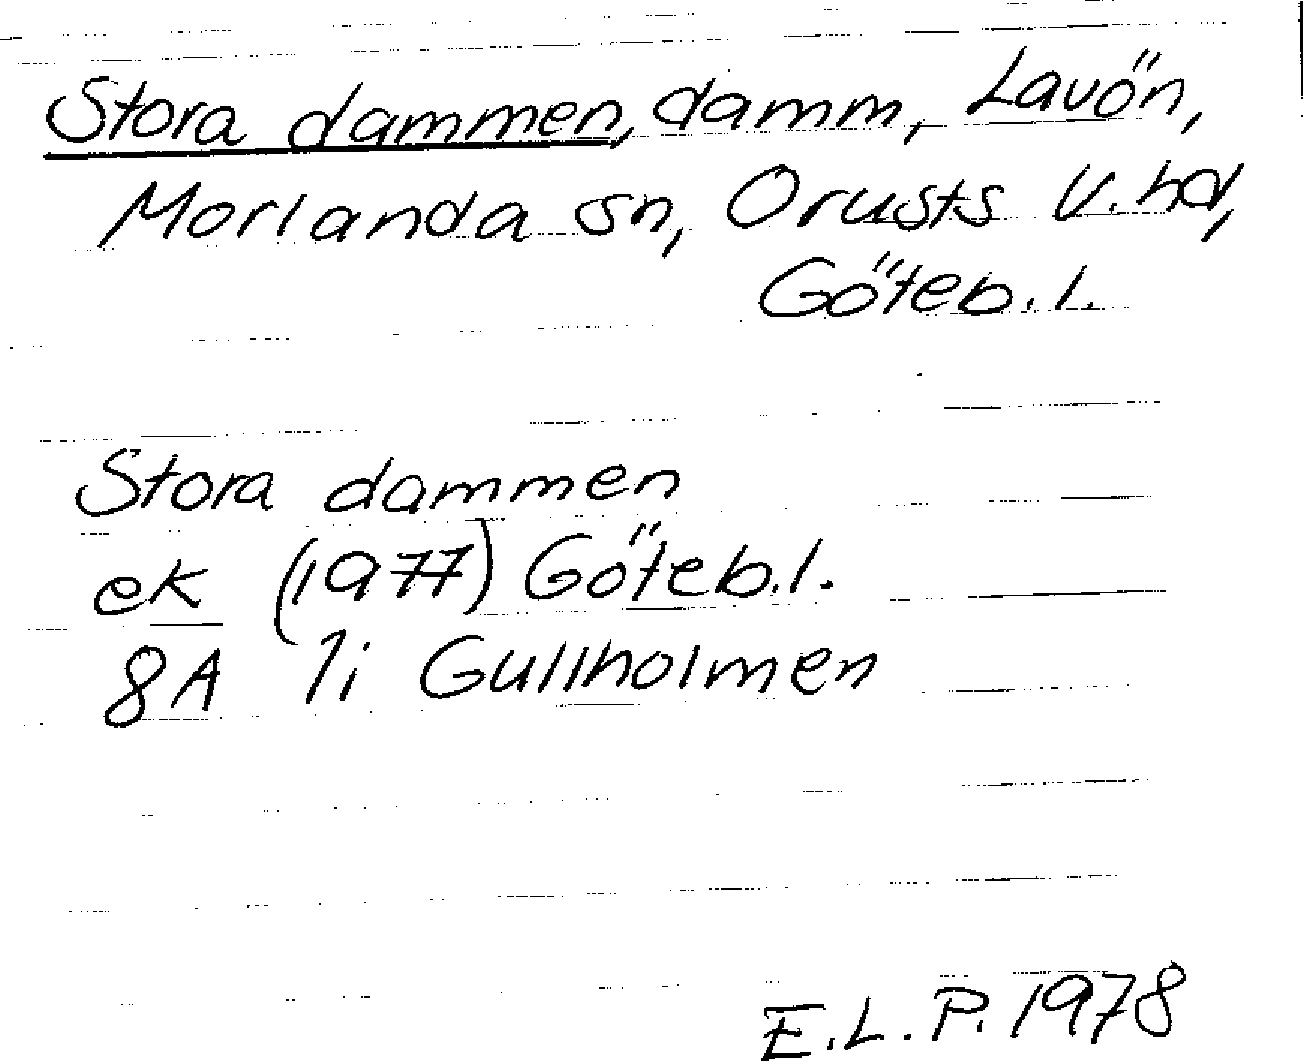 Stora dammen, damm, Lavön,
Morlanda sn, Orusts V. hd,
Göteb. l.
Stora dammen
ek (1977) Göteb. l.
8A 7i Gullholmen
E. L. P. 1978